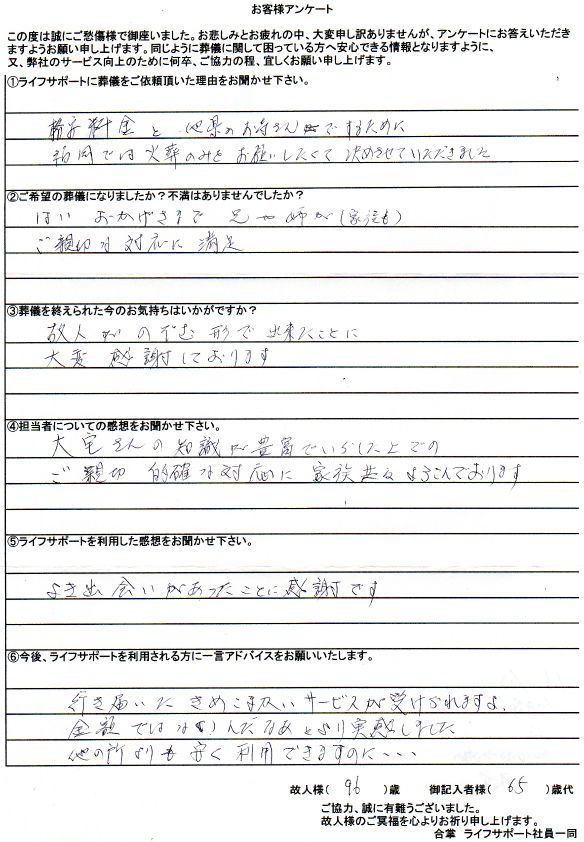 お客様アンケート
この度は誠にご愁傷様で御座いました。お悲しみとお疲れの中、大変申し訳ありませんが、アンケートにお答えいただき
ますようお願い申し上げます。同じように葬儀に関して困っている方へ安心できる情報となりますように、
又、弊社のサービス向上のために何卒、ご協力の程、宜しくお願い申し上げます。
①ライフサポートに葬儀をご依頼頂いた理由をお聞かせ下さい。
料金と 他県のお寺さんでするために
福岡では火葬のみを お願いしたくて 決めさせていただきました
②ご希望の葬儀になりましたか？不満はありませんでしたか？
はい おかげさまで 兄や姉が(家族も)
ご親切な対応に 満足
③葬儀を終えられた今のお気持ちはいかがですか？
故人がのぞむ形で出来たことに
大変 感謝しております
④担当者についての感想をお聞かせ下さい。
大宅さんの知識が豊富でいらした上での
ご親切 的確な対応に 家族共々よろこんでおります
⑤ライフサポートを利用した感想をお聞かせ下さい。
よき出会いがあったことに感謝です
⑥今後、ライフサポートを利用される方に一言アドバイスをお願いいたします。
行き届いた きめこまかい サービスが受けられますよ、
金額ではないんだなあとより実感しました
他の所よりも安く利用できますのに・・・
故人様( 96 )歳 御記入者様( 65 )歳代
ご協力、誠に有難うございました。
故人様のご冥福を心よりお祈り申し上げます。
合掌 ライフサポート社員一同